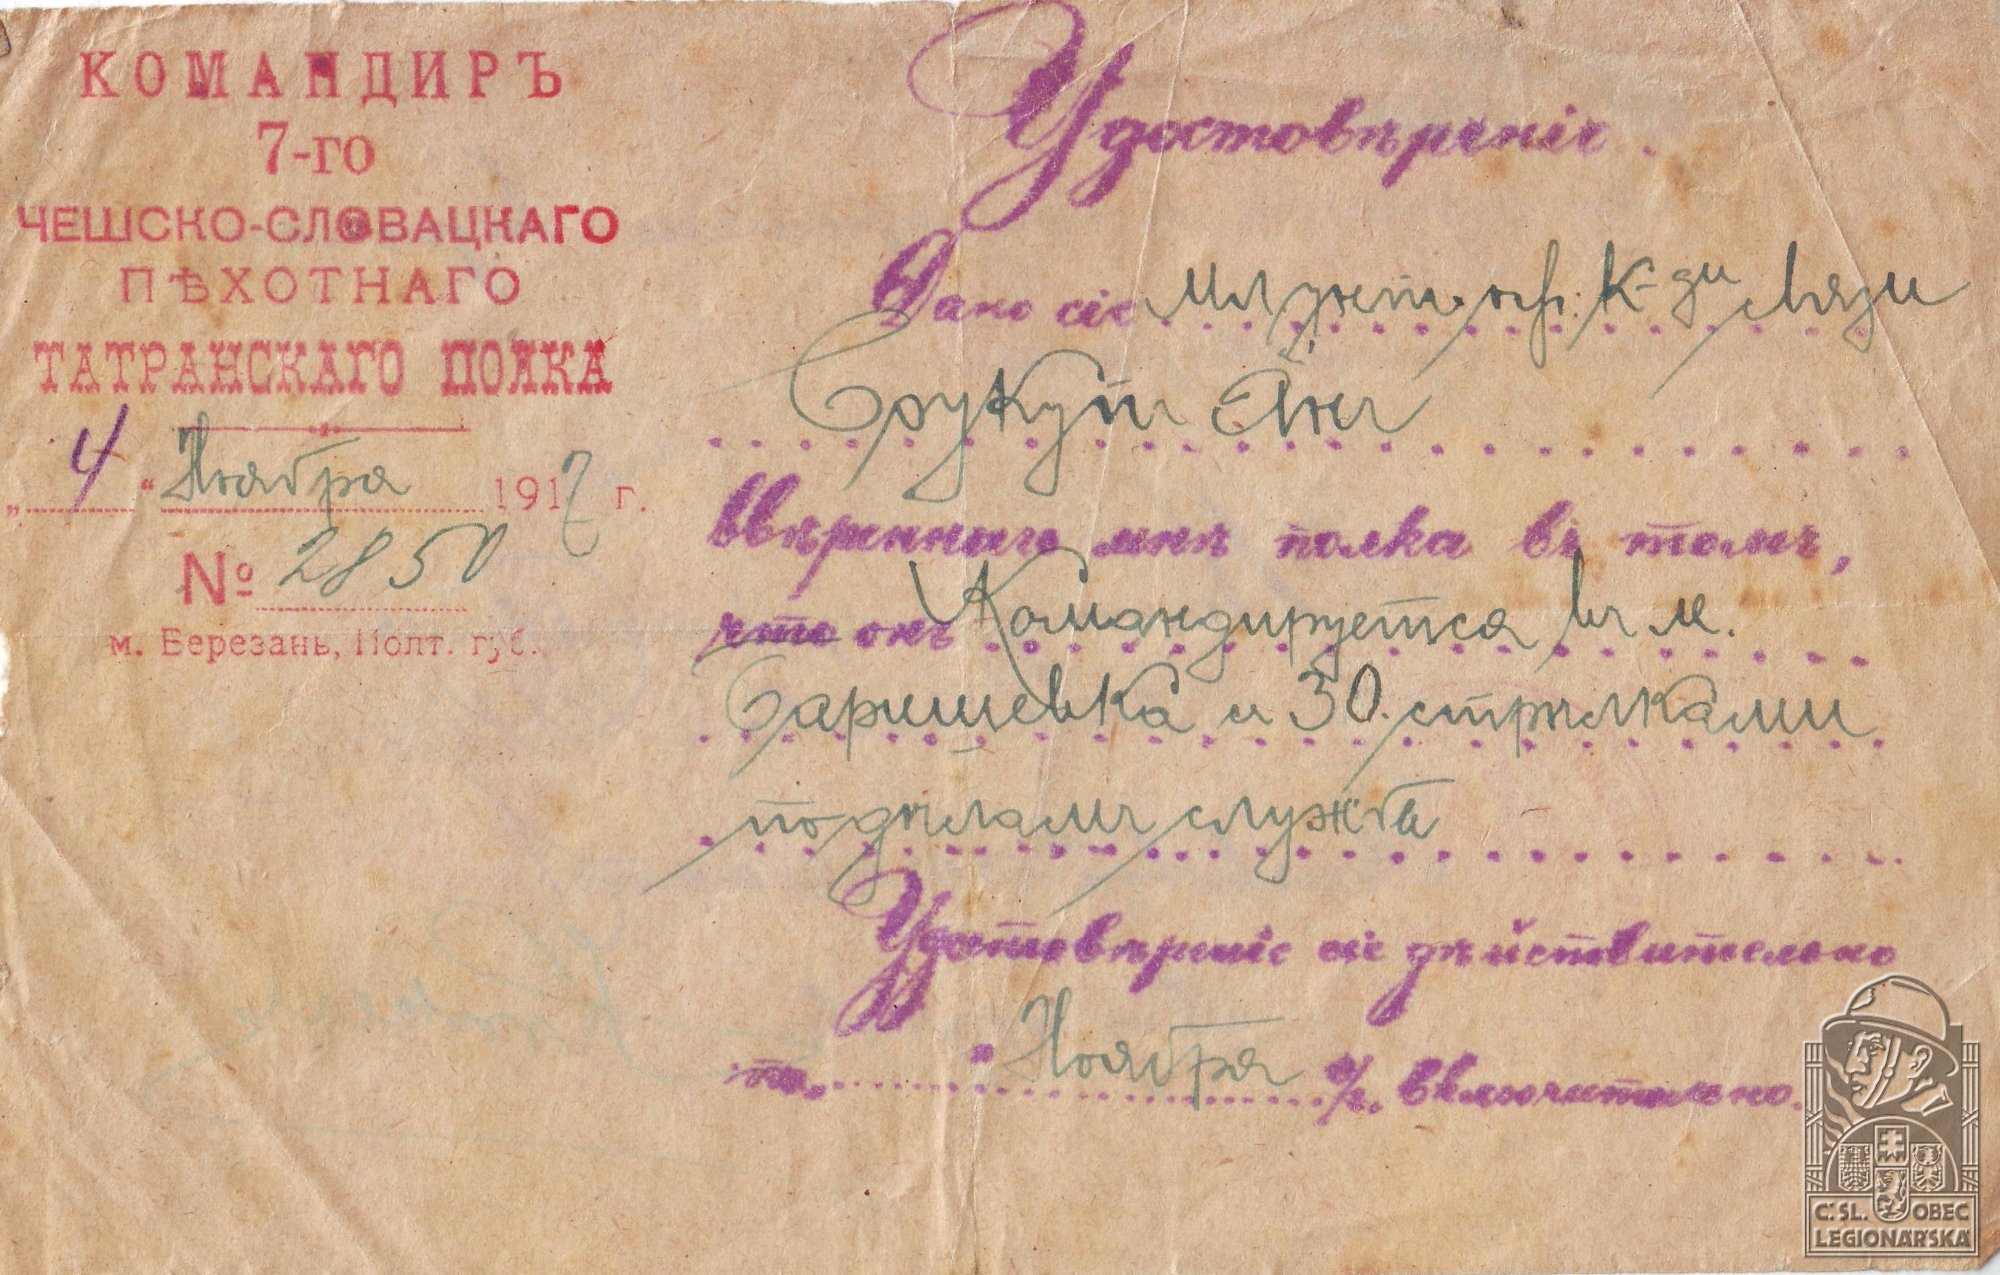 КОМАНДИРЪ
7-го
ЧЕШСКО-СЛОВАЦКАГО
ПѢХОТНАГО
ТАТРАНСКАГО ПОЛКА
„ 4 “ Ноября 1917 г.
№ 2850
м. Березань, Полт. губ.
Удостовѣреніе.
Дано сіе мл. унт. оф. К-ди связи
Брукуй Янъ
ввѣреннаго мнѣ полка въ томъ,
что онъ Командируется въ м.
Баришевка и 30. стрѣлками
по дѣламъ службы
Удостовѣреніе сіе дѣйствительно
по. Ноября с/г. включительно.
Č.SL. OBEC
LEGIONÁŘSKÁ